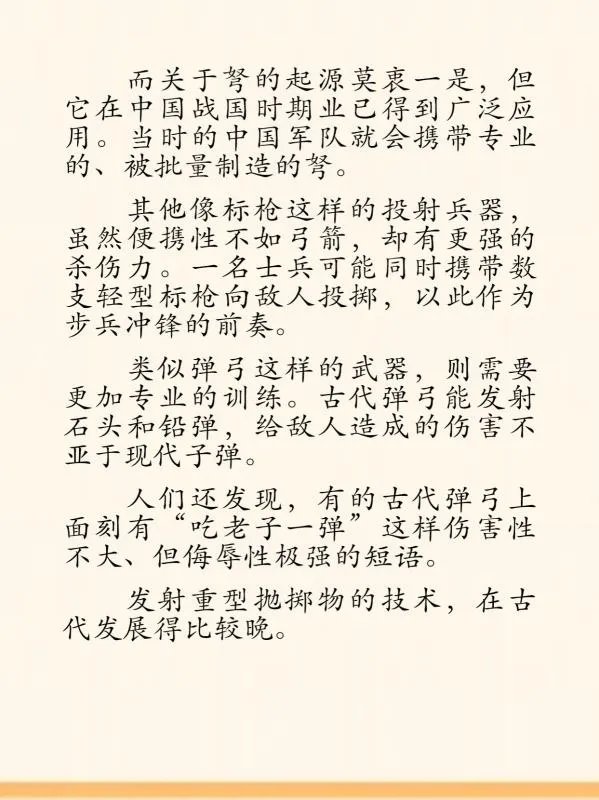 而关于弩的起源莫衷一是，但
它在中国战国时期业已得到广泛应
用。当时的中国军队就会携带专业
的、被批量制造的弩。
其他像标枪这样的投射兵器，
虽然便携性不如弓箭，却有更强的
杀伤力。一名士兵可能同时携带数
支轻型标枪向敌人投掷，以此作为
步兵冲锋的前奏。
类似弹弓这样的武器，则需要
更加专业的训练。古代弹弓能发射
石头和铅弹，给敌人造成的伤害不
亚于现代子弹。
人们还发现，有的古代弹弓上
面刻有“吃老子一弹”这样伤害性
不大、但侮辱性极强的短语。
发射重型抛掷物的技术，在古
代发展得比较晚。